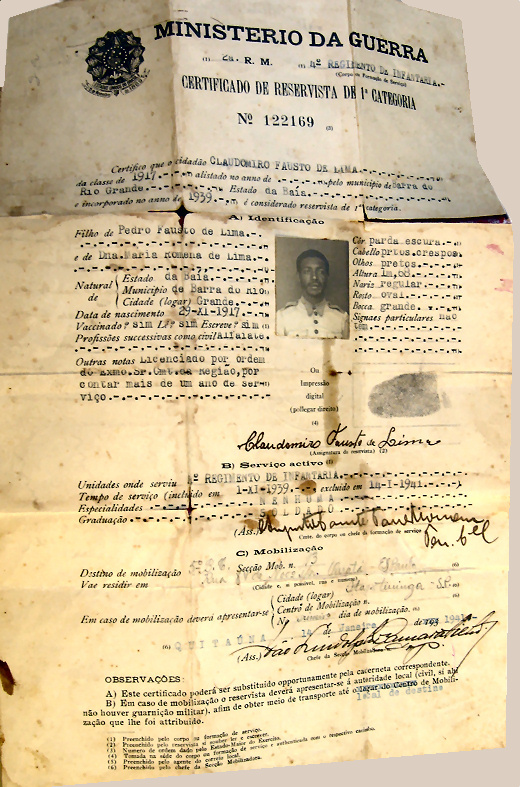 MINISTERIO DA GUERRA
(1) 2a. R. M. (1) 4º REGIMENTO DE INFANTARIA.-
(Corpo ou Formação de Serviço)
CERTIFICADO DE RESERVISTA DE 1ª CATEGORIA
Nº 122169 (3)
Certifico que o cidadão CLAUDOMIRO FAUSTO DE LIMA
da classe de 1917 alistado no ano de pelo município de Barra do
Rio Grande. Estado da Baía.
e incorporado no ano de 1939 é considerado reservista de 1ª categoria.
A) Identificação
Filho de Pedro Fausto de Lima.
e de Dna. Maria Romena de Lima.
Natural de
Estado da Baía.
Município de Barra do Rio
Cidade (logar) Grande.
Data de nascimento 29-XI-1917
Vacinado? sim Lê? sim Escreve? sim
Profissões successivas como civil Alfaiate.
Outras notas Licenciado por ordem
do Exmo. Sr. Cmt. da Região, por
contar mais de um ano de ser-
viço.
Côr parda escura.
Cabello pretos, crespos
Olhos pretos.
Altura 1m,68
Nariz regular
Rosto oval
Bocca grande.
Signaes particulares não
tem.
Ou
Impressão
digital
(pollegar direito)
(4)
Claudomiro Fausto de Lima
(Assignatura do reservista) (2)
B) Serviço activo
Unidades onde serviu 4º REGIMENTO DE INFANTARIA.
Tempo de serviço (incluido em 1-XI-1939. excluido em 14-I-1941.
Especialidades NENHUMA
Graduação SOLDADO
(Ass.)
Cmte. do corpo ou chefe da formação de serviço
C) Mobilização
Destino de mobilização Secção Mob. n.
Vae residir em
(Cidade e, si possivel, rua e numero)
Em caso de mobilização deverá apresentar-se
Cidade (logar)
Centro de Mobilização n.
dia de mobilização.
(6) QUITAUNA 14 de Janeiro de 1941
(Ass.)
Chefe da Secção Mobilizadora
OBSERVAÇÕES:
A) Este certificado poderá ser substituido opportunamente pela caderneta correspondente.
B) Em caso de mobilização o reservista deverá apresentar-se á autoridade local (civil, si ahi
não houver guarnição militar), afim de obter meio de transporte até o logar do Centro de Mobili-
local de destino
zação que lhe foi atribuido.
(1) Preenchido pelo corpo ou formação de serviço.
(2) Preenchido pelo reservista si souber ler e escrever.
(3) Numero de ordem dado pelo Estado-Maior do Exercito.
(4) Tomada na séde do corpo ou formação de serviço e authenticada com o respectivo carimbo.
(5) Preenchido pelo agente do correio local.
(6) Preenchido pelo chefe da Secção Mobilizadora.